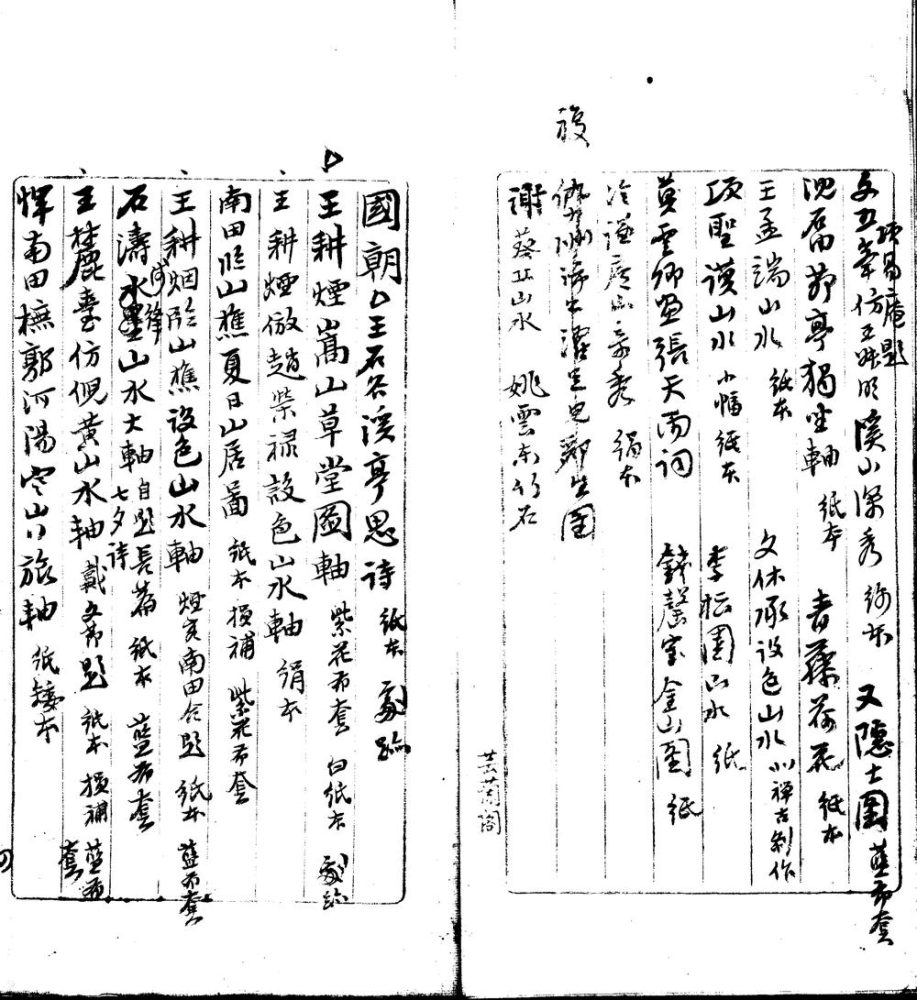 文五峯仿王叔明溪山深秀 紙本 又隱士圖 藍布套
項易庵題
沈石田莎亭獨坐軸 紙本 青藤荷花 紙本
王孟端山水 紙本 文休承設色山水
項聖謨山水 小幅 紙本 李松圓山水 紙
黃雲卿畫張天雨詞 錢罄室金山圖 紙
冷謙 秀 絹本
復
謝葵丘山水 姚雲東竹石
芸菁閣
國朝 王石谷溪亭思詩 紙本
王耕煙嵩山草堂圖軸 紫花布套 白紙本
王耕煙倣趙榮祿設色山水軸 絹本
南田臨山樵夏日山居圖 紙本 損補 紫花布套
王耕烟臨山樵設色山水軸 煙客南田合題 紙本 藍布套
石濤水墨山水大軸 自題長篇 紙本 藍布套
七夕詩
王麓臺仿倪黃山水軸 戴文節題 紙本 損補 藍布套
惲南田橅郭河陽寒山行旅軸 紙矮本